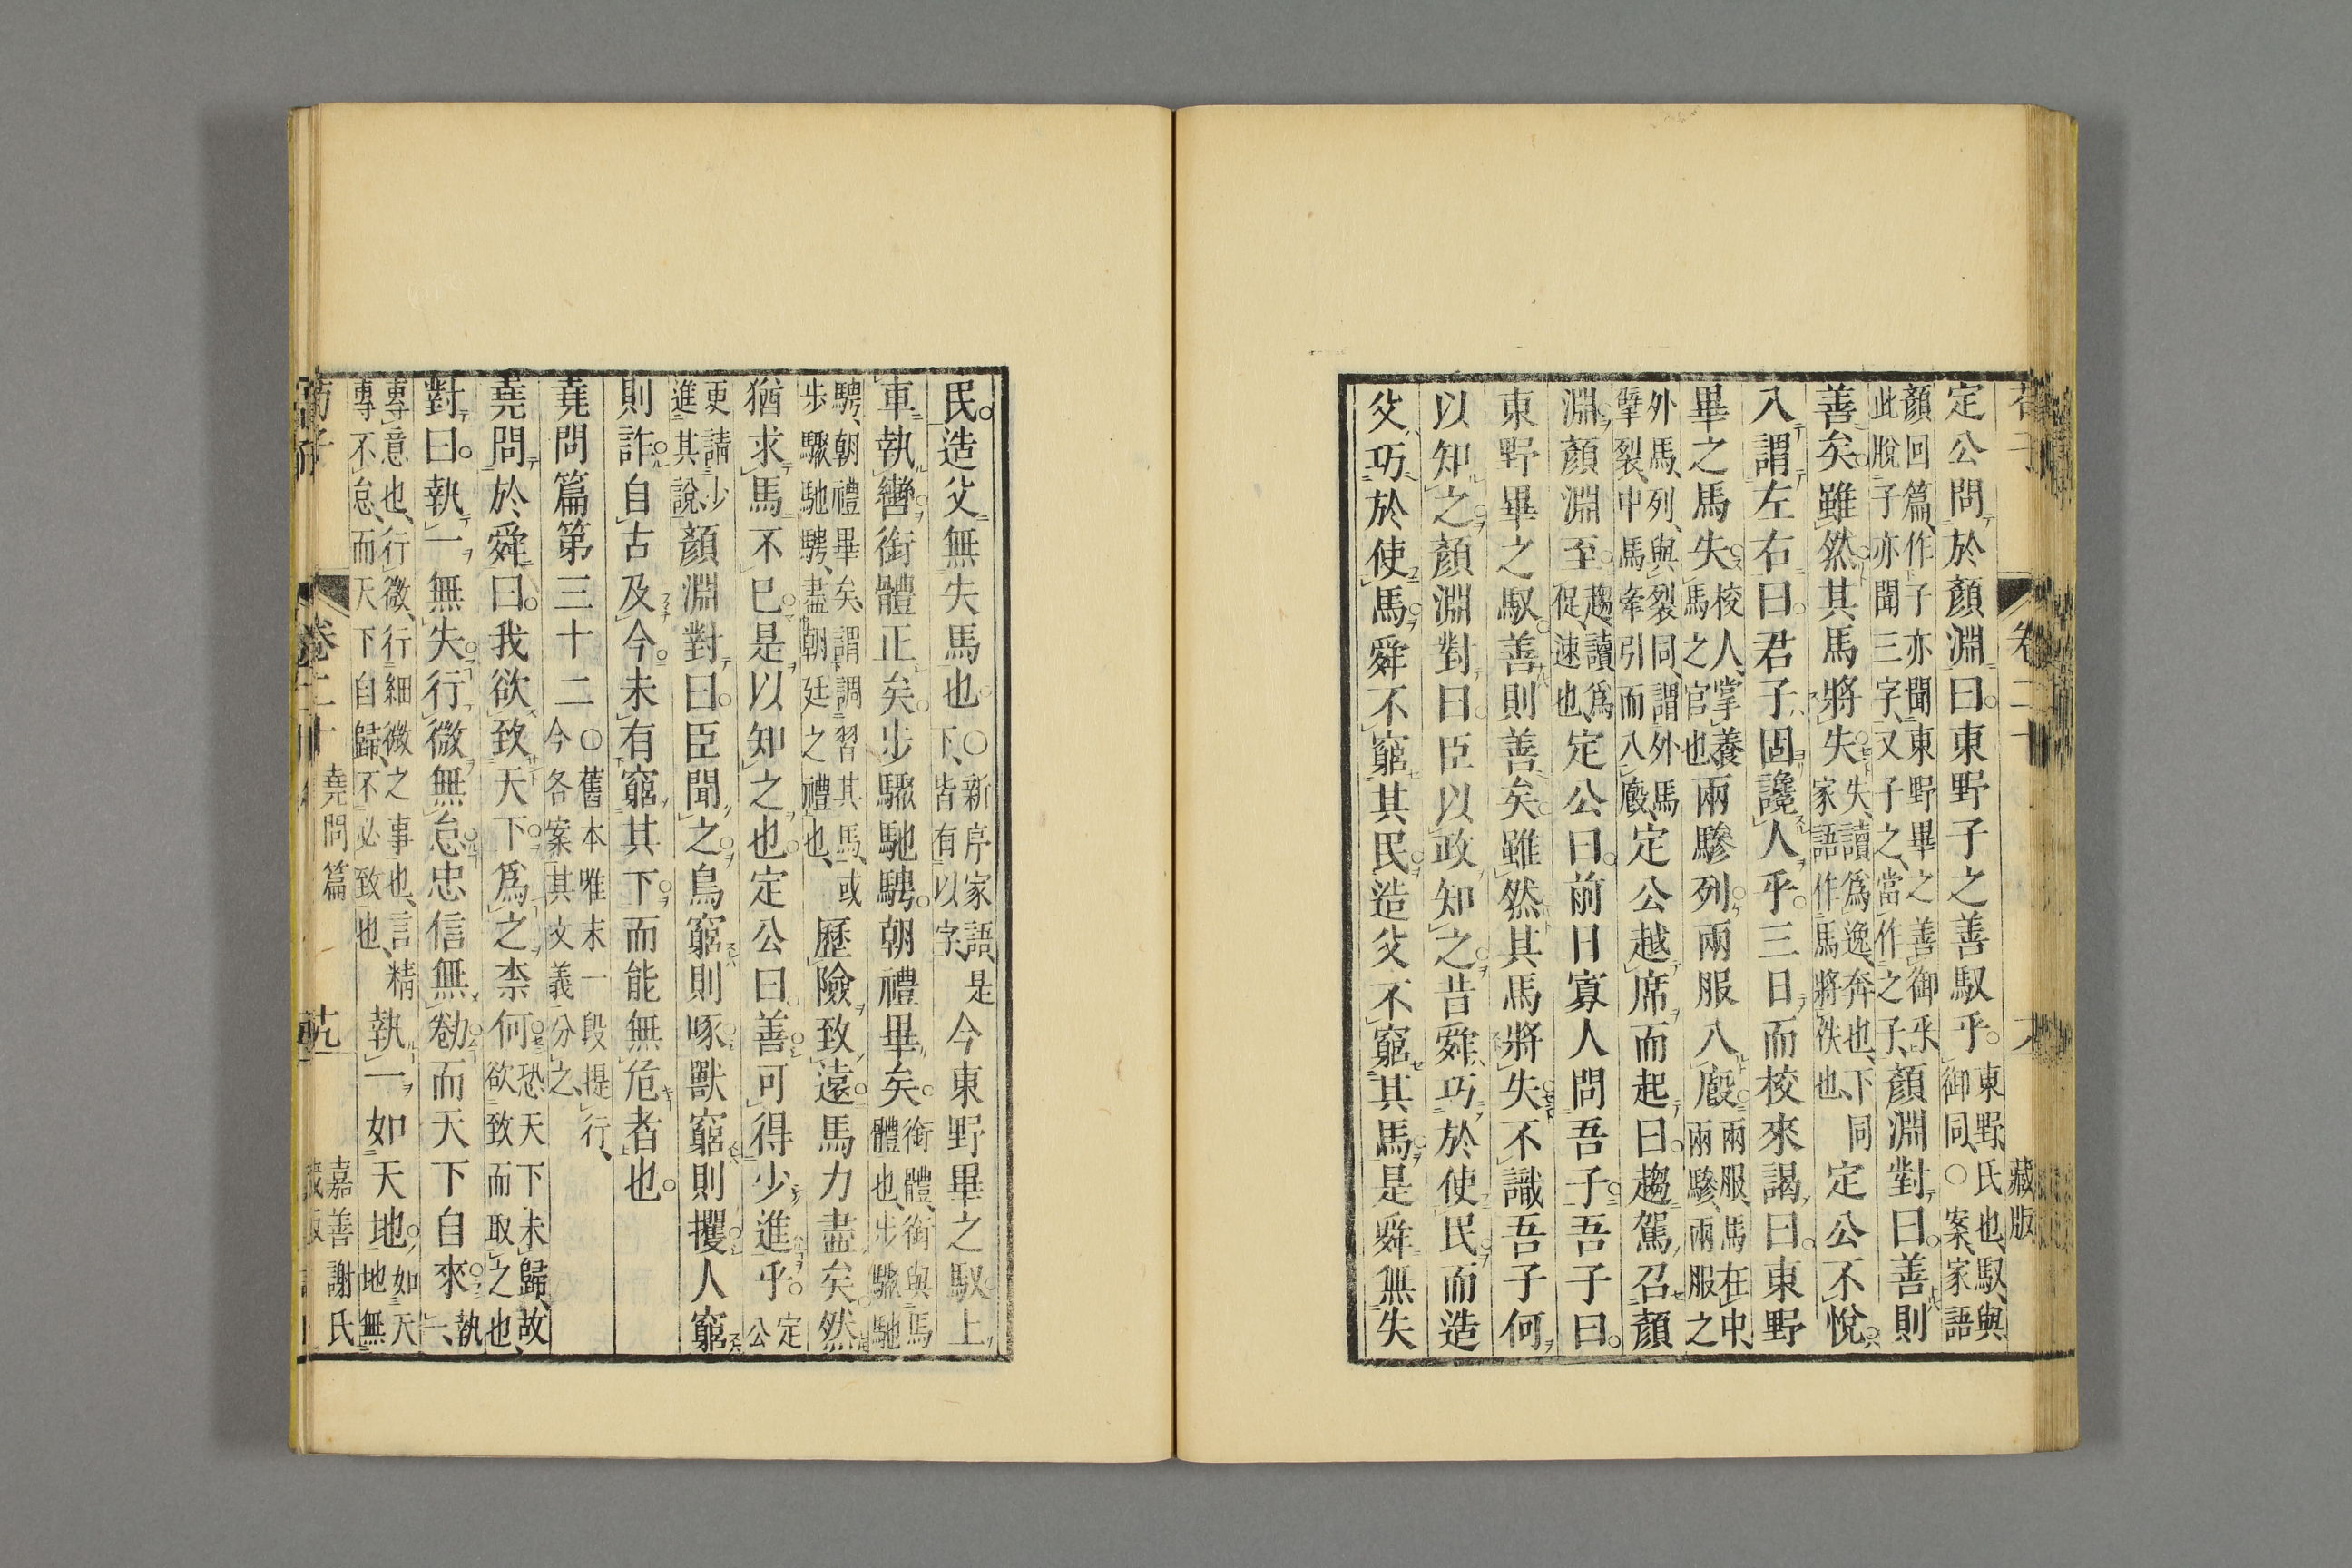 定公問於顏淵曰東野子之善馭乎東野氏也馭與御同○案家語
顏回篇作子亦聞東野畢之善御乎此脫子亦聞三字又子之當作之子顏淵對曰善則
善矣雖然其馬將失失讀為逸奔也下同家語作馬將佚也定公不悅
入謂左右曰君子固讒人乎三日而校來謁曰東野
畢之馬失校人掌養馬之官也兩驂列兩服入廏兩服馬在中兩驂兩服之
外馬列與裂同謂外馬擘裂中馬牽引而入廏定公越席而起曰趨駕召顏
淵顏淵至趨讀為促速也定公曰前日寡人問吾子吾子曰
東野畢之馭善則善矣雖然其馬將失不識吾子何
以知之顏淵對曰臣以政知之昔舜巧於使民而造
父巧於使馬舜不窮其民造父不窮其馬是舜無失
民造父無失馬也○新序家語是下皆有以字今東野畢之馭上
車執轡銜體正矣步驟馳騁朝禮畢矣銜體銜與馬體也步驟馳
騁朝禮畢矣謂調習其馬或步驟馳騁盡朝廷之禮也歷險致遠馬力盡矣然
猶求馬不已是以知之也定公曰善可得少進乎定公
更請少進其說顏淵對曰臣聞之鳥窮則啄獸窮則攫人窮
則詐自古及今未有窮其下而能無危者也
堯問篇第三十二○舊本唯末一段提行今各案其文義分之
堯問於舜曰我欲致天下為之柰何恐天下未歸故欲致而取之也
對曰執一無失行微無怠忠信無勌而天下自來執一
專意也行微行細微之事也言精專不怠而天下自歸不必致也執一如天地如天地無
卷二十 堯問篇 十九 嘉善謝氏
卷二十 藏版